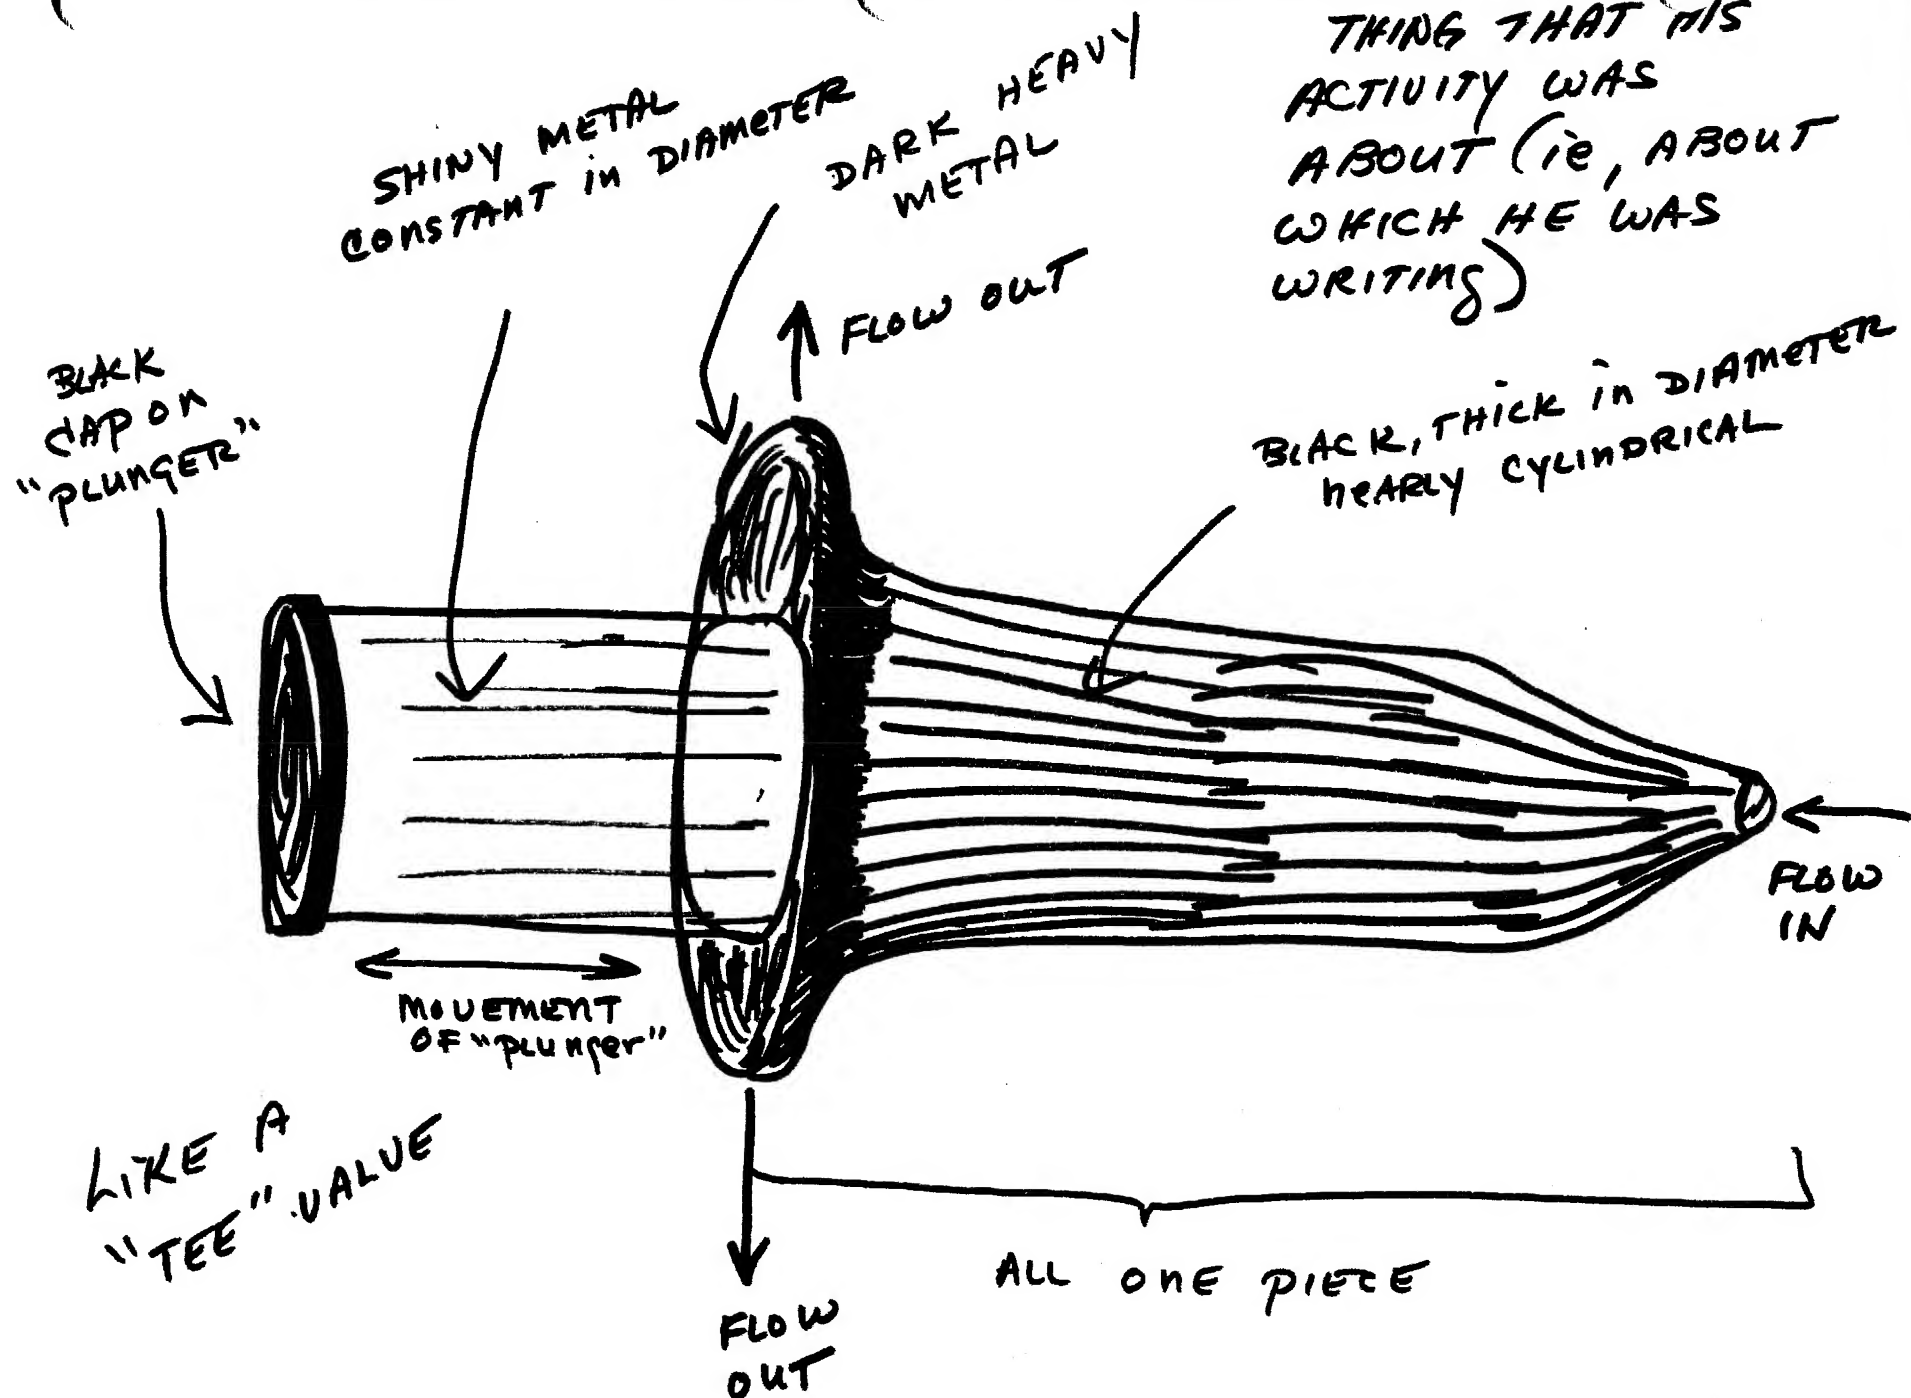 THING THAT HIS
ACTIVITY WAS
ABOUT (ie, ABOUT
WHICH HE WAS
WRITING)
SHINY METAL
CONSTANT in DIAMETER
DARK HEAVY
METAL
FLOW OUT
BLACK
CAP ON
"PLUNGER"
BLACK, THICK in DIAMETER
NEARLY CYLINDRICAL
FLOW
IN
MOVEMENT
OF "plunger"
LIKE A
"TEE" VALUE
ALL ONE PIECE
FLOW
OUT